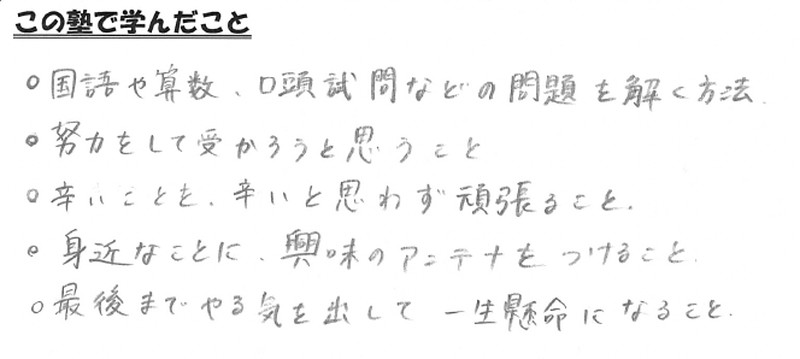 この塾で学んだこと
○国語や算数、口頭試問などの問題を解く方法.
○努力をして受かろうと思うこと
○辛いことを、辛いと思わず頑張ること.
○身近なことに、興味のアンテナをつけること.
○最後までやる気を出して一生懸命になること.